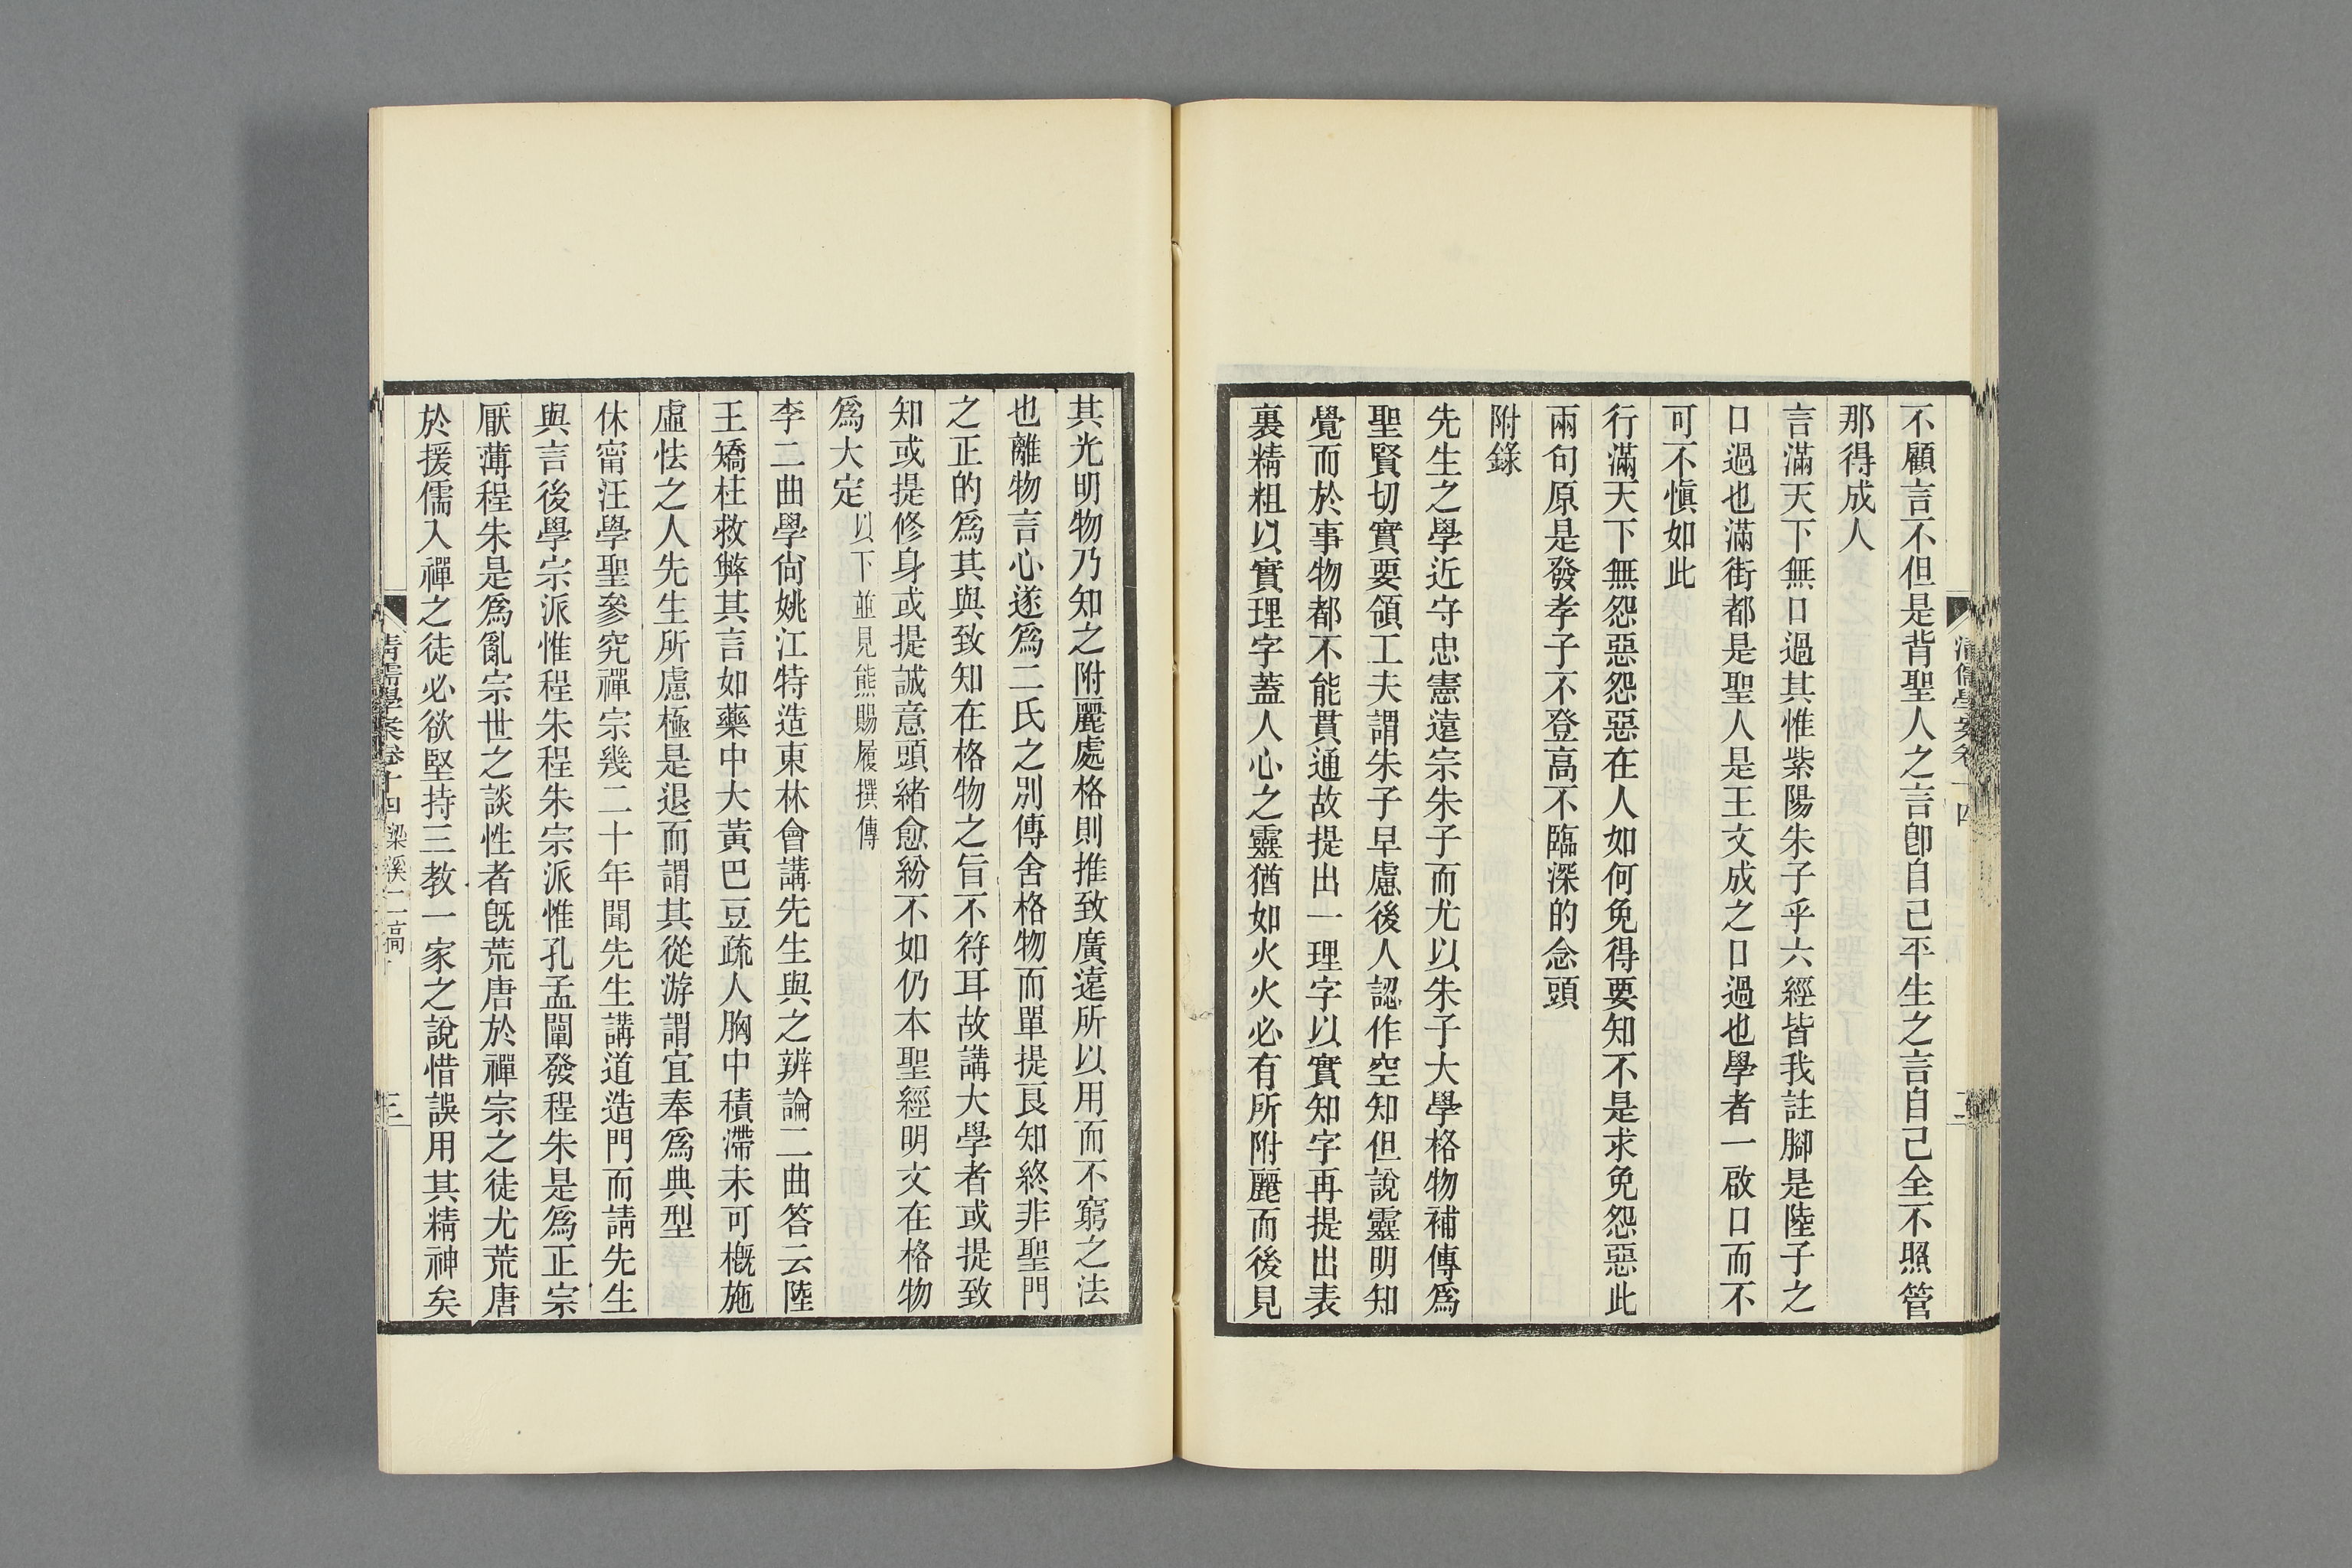 不顧言不但是背聖人之言卽自己平生之言自己全不照管
那得成人
言滿天下無口過其惟紫陽朱子乎六經皆我註腳是陸子之
口過也滿街都是聖人是王文成之口過也學者一啟口而不
可不愼如此
行滿天下無怨惡怨惡在人如何免得要知不是求免怨惡此
兩句原是發孝子不登高不臨深的念頭
附錄
先生之學近守忠憲遠宗朱子而尤以朱子大學格物補傳爲
聖賢切實要領工夫謂朱子早慮後人認作空知但說靈明知
覺而於事物都不能貫通故提出一理字以實知字再提出表
裏精粗以實理字蓋人心之靈猶如火火必有所附麗而後見
其光明物乃知之附麗處格則推致廣遠所以用而不窮之法
也離物言心遂爲二氏之別傳舍格物而單提良知終非聖門
之正的爲其與致知在格物之旨不符耳故講大學者或提致
知或提修身或提誠意頭緒愈紛不如仍本聖經明文在格物
爲大定以下並見熊賜履撰傳
李二曲學尙姚江特造東林會講先生與之辨論二曲答云陸
王矯枉救弊其言如藥中大黃巴豆疏人胸中積滯未可槪施
虛怯之人先生所慮極是退而謂其從游謂宜奉爲典型
休甯汪學聖參究禪宗幾二十年聞先生講道造門而請先生
與言後學宗派惟程朱程朱宗派惟孔孟闡發程朱是爲正宗
厭薄程朱是爲亂宗世之談性者旣荒唐於禪宗之徒尤荒唐
於援儒入禪之徒必欲堅持三教一家之說惜誤用其精神矣
清儒學案卷十四 梁溪二高 三